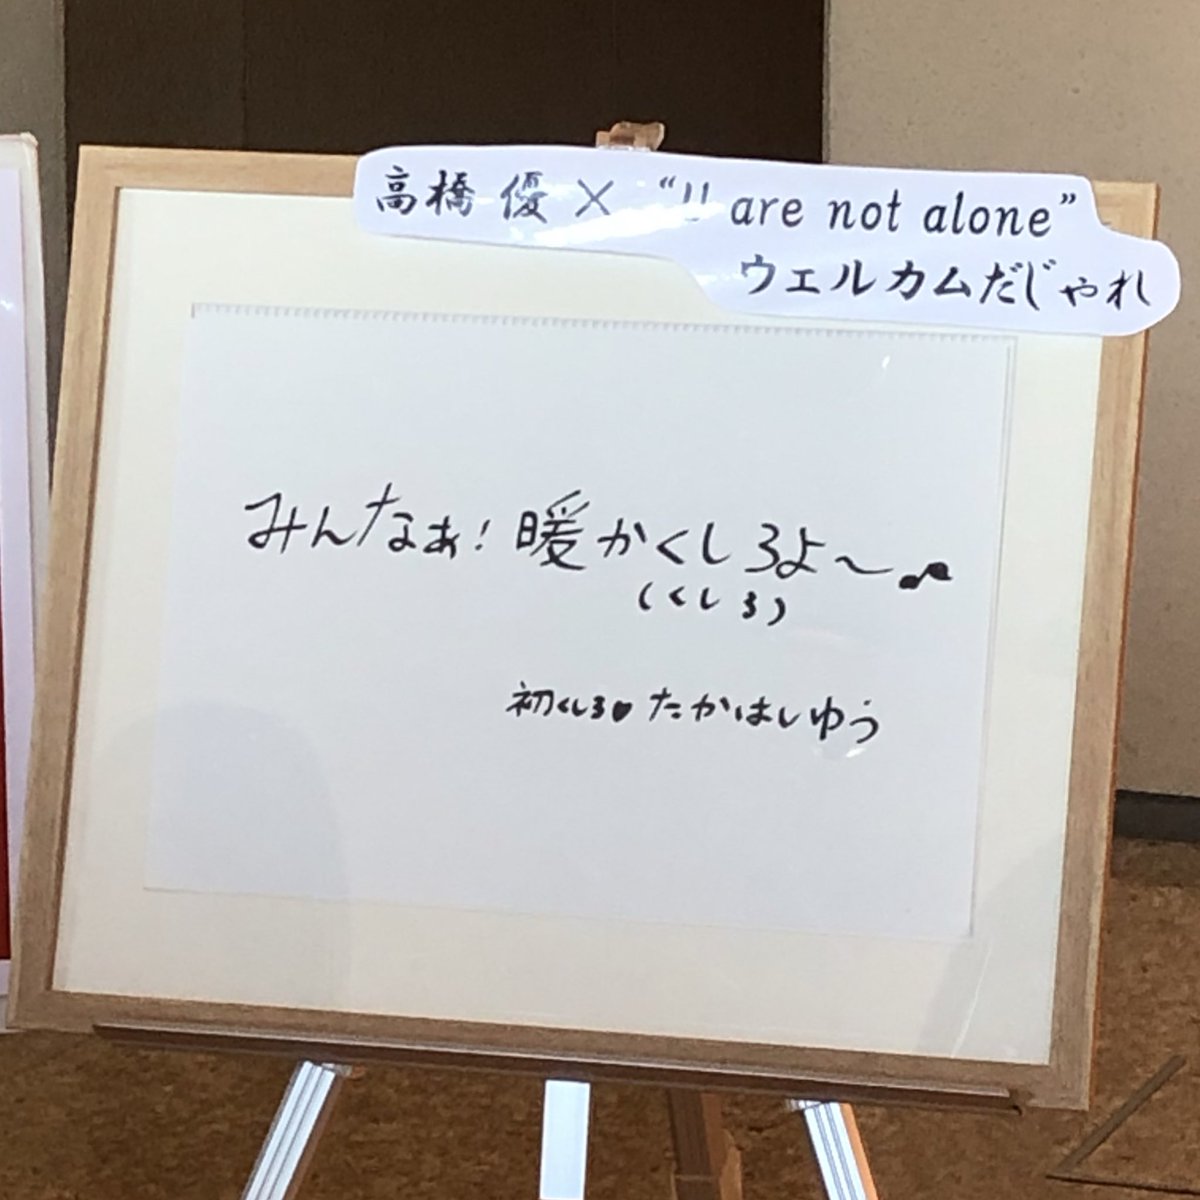 高橋 優 × “U are not alone”
ウェルカムだじゃれ
みんなぁ！暖かくしろよ〜♪
(くしろ)
初くしろ♥ たかはしゆう